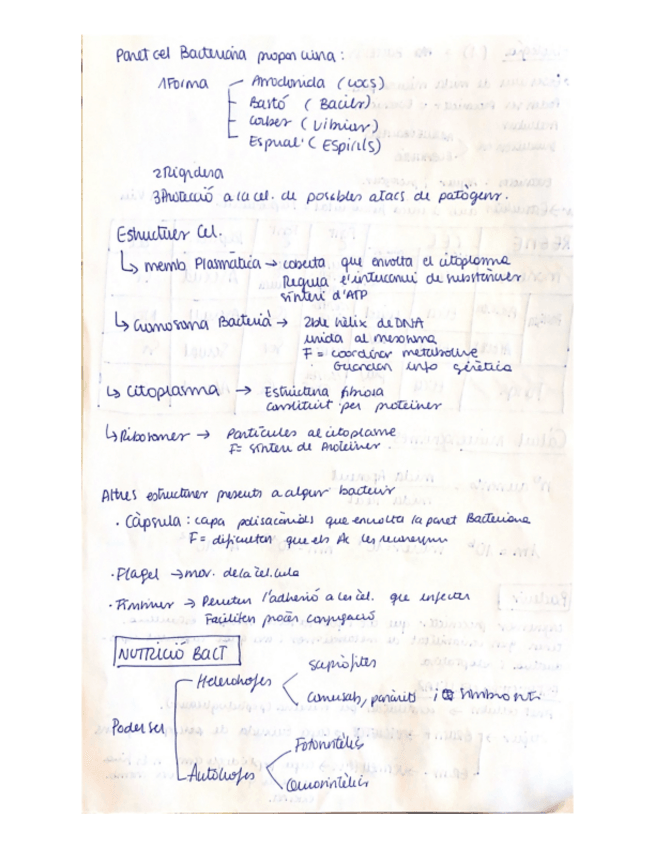 Paret cel Bacteriana proporciona:
1Forma
Arrodonida (cocs)
Bastó (Bacils)
Corbes (Vibrios)
Espiral (Espirils)
2Rigidesa
3Protecció a la cel. de possibles atacs de patògens.
Estructures Cel.
↳ memb Plasmàtica → coberta que envolta el citoplasma
Regula l'intercanvi de substàncies
síntesi d'ATP
↳ Cromosoma Bacterià → doble hèlix de DNA
unida al mesosoma
F = coordinar metabolisme
Guarden info genètica
↳ Citoplasma → Estructura fibrosa
constituït per proteïnes
↳ Ribosomes → Partícules al citoplasma
F = síntesi de Proteïnes.
Altres estructures presents a algun bacteris
· Càpsula: capa polisacàrids que envolta la paret Bacteriana
F = dificulten que els Ac les reconeguin
· Flagel → mov. de la cèl.lula
· Fímbries → Permeten l'adhesió a les cèl. que infecten
Faciliten procés conjugació
NUTRICIÓ BACT
Poder ser
Heteròtrofes
sapròfites
comensals, paràsits i simbionts
Autòtrofes
Fotosintètics
Quimiosintètics